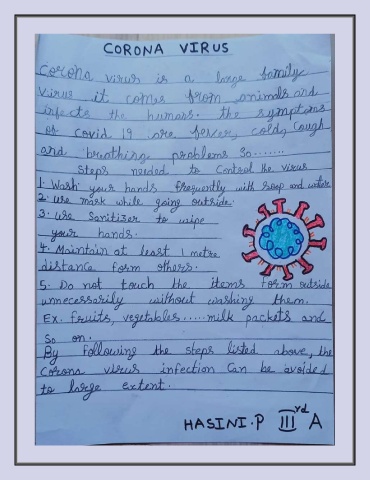 CORONA VIRUS
Corona virus is a large family
virus it comes from animals and
infects the humans. the symptoms
of covid 19 are fever, cold, cough
and breathing problems so.......
Steps needed to control the virus
1. Wash your hands frequently with soap and water
2. use mask while going outside.
3. use Sanitizer to wipe
your hands.
4. Maintain at least 1 metre
distance form others.
5. Do not touch the items form outside
unnecessarily without washing them.
Ex. fruits, vegetables.....milk packets and
so on.
By following the steps listed above, the
corona virus infection can be avoided
to large extent.
HASINI.P III rd A